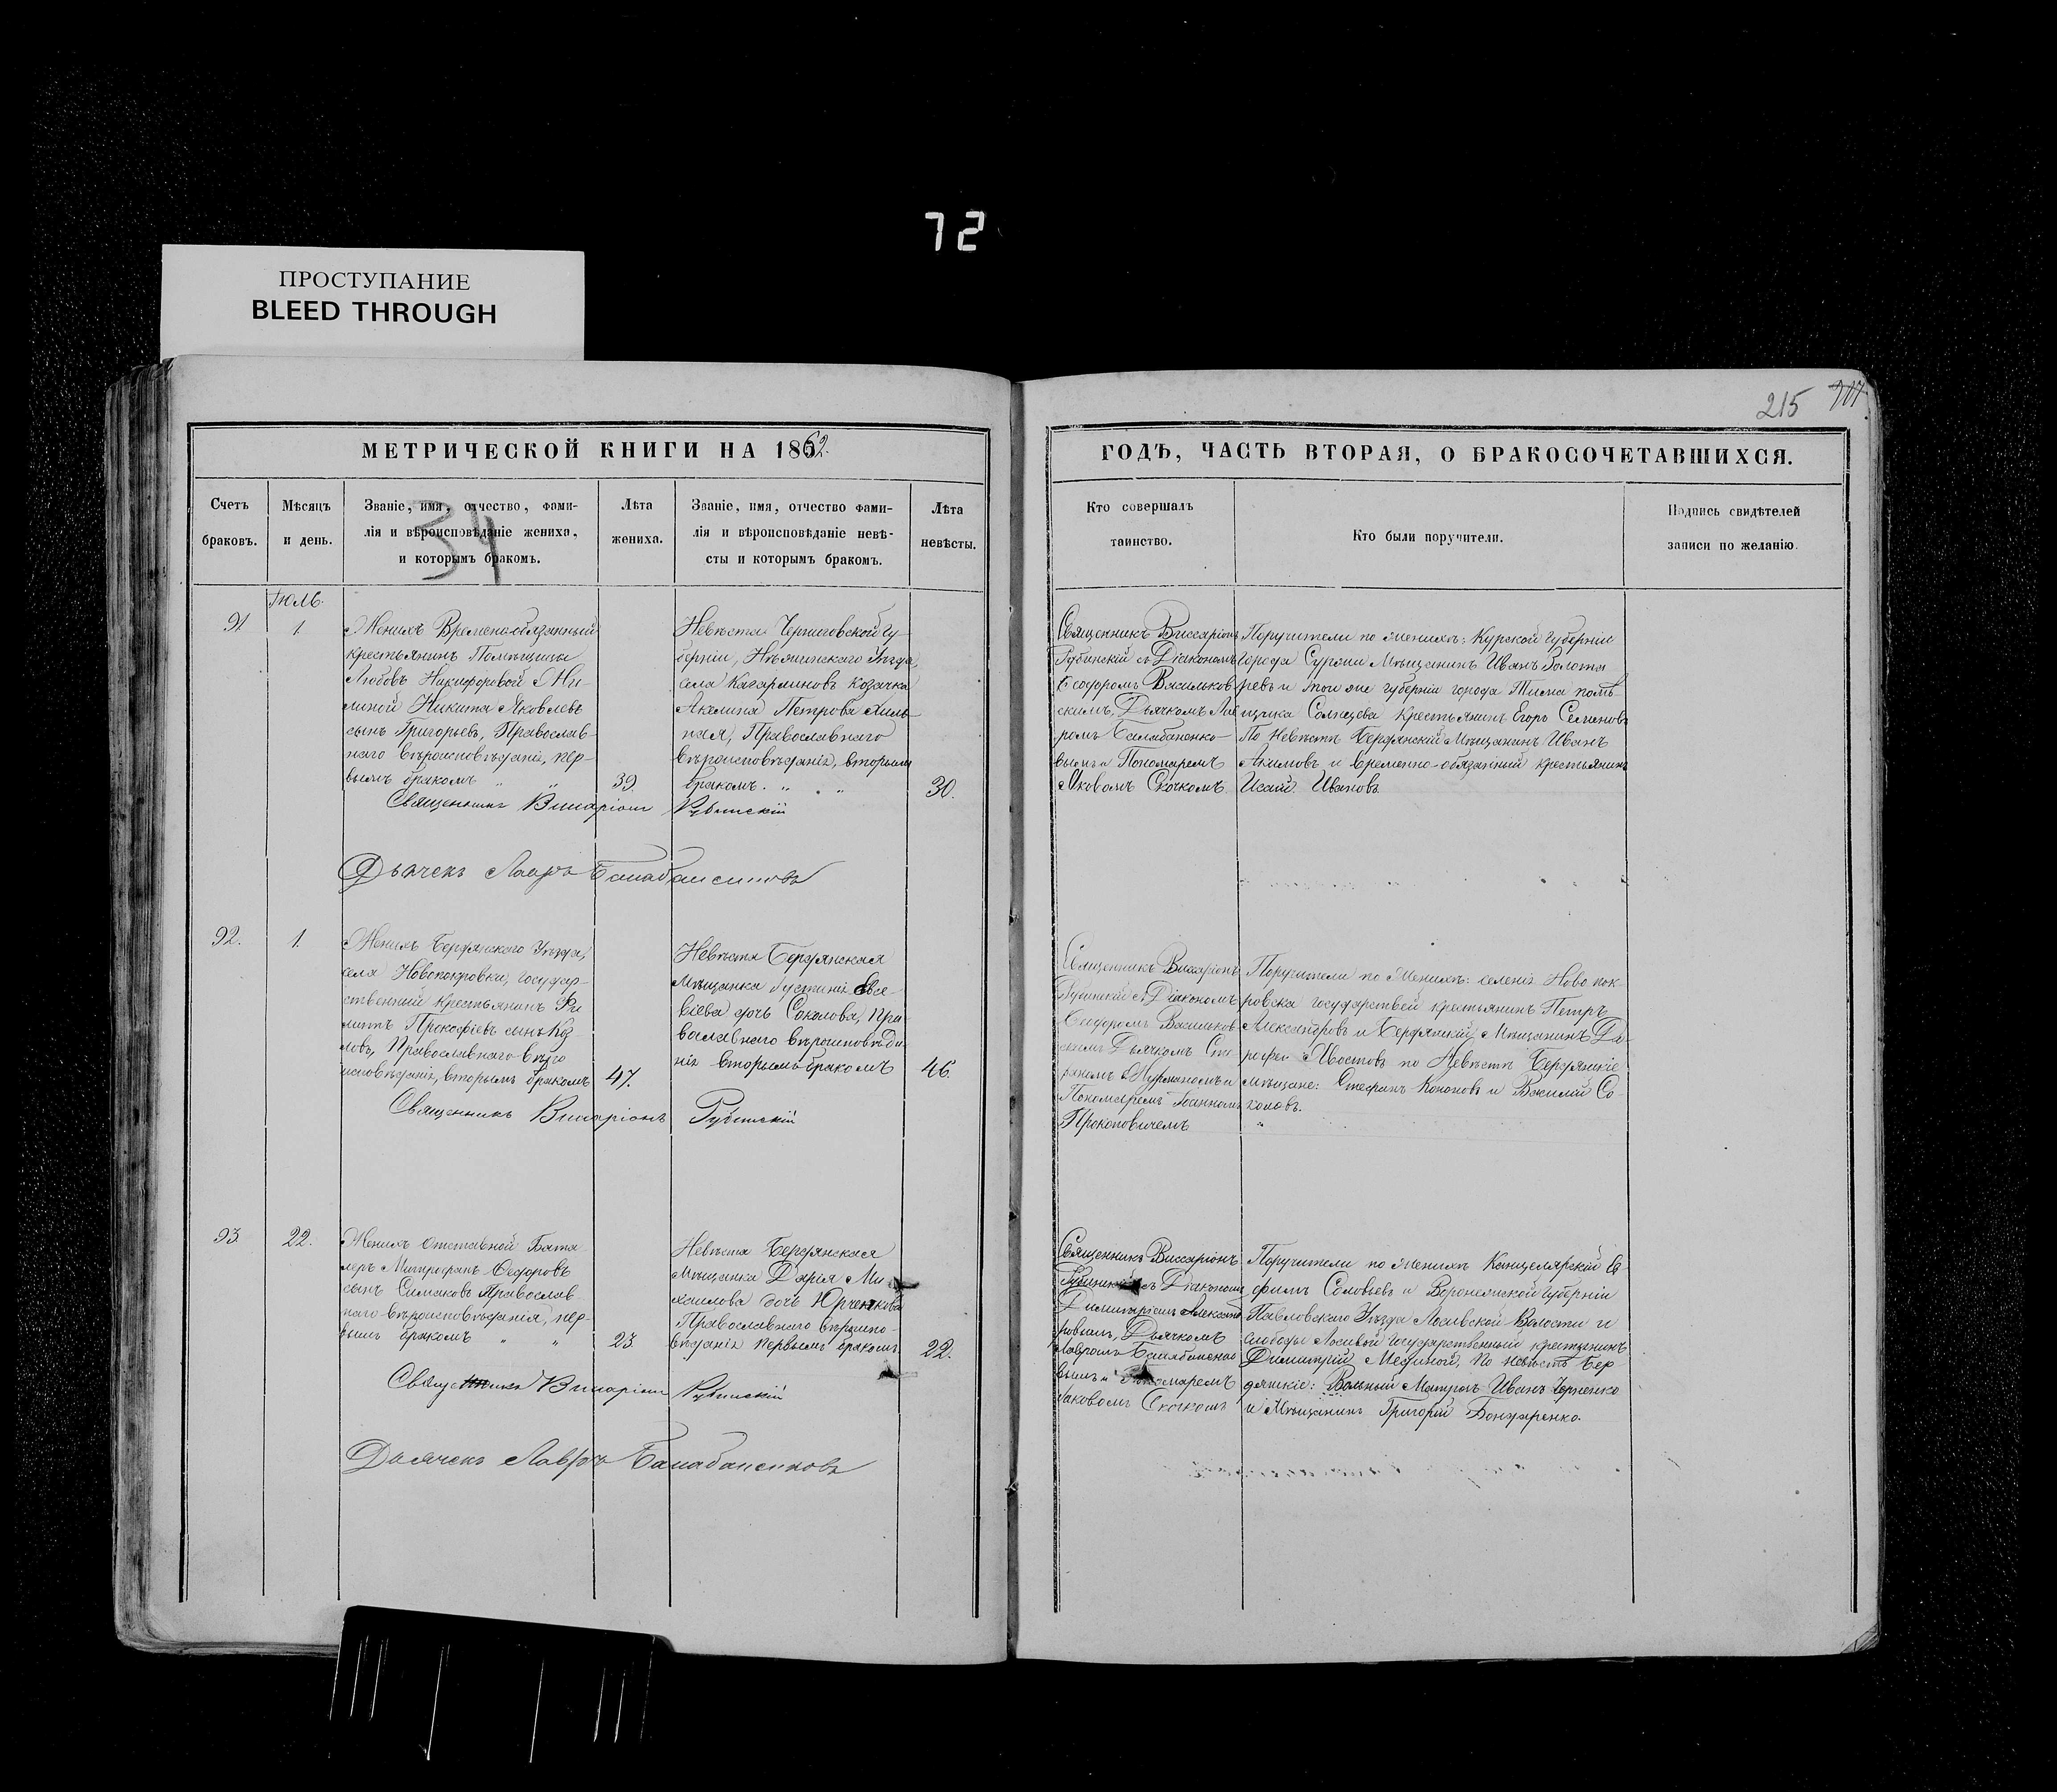 72
ПРОСТУПАНИЕ
BLEED THROUGH
215
МЕТРИЧЕСКОЙ КНИГИ НА 1862.
Счетъ браковъ.
Мѣсяцъ и день.
Званіе, имя, отчество, фами-
лія и вѣроисповѣданіе жениха,
и которымъ бракомъ.
34
Лѣта
жениха.
Званіе, имя, отчество фами-
лія и вѣроисповѣданіе невѣ-
сты и которымъ бракомъ.
Лѣта
невѣсты.
Іюль.
91
1.
Женихъ Временно-обязанный
крестьянинъ Помѣщицы
Любовь Никифоровой
Никита Яковлевъ
сынъ Григорьевъ, Православ-
наго вѣроисповѣданія, пер-
вымъ бракомъ " "
39.
Невѣста Черниговской Гу-
берніи, Нѣжинскаго Уѣзда,
села козачка
Акилина Петрова
Православнаго
вѣроисповѣданія, вторымъ
бракомъ. " "
30.
Священникъ Висаріонъ Рубинскій
Дьячекъ Лавръ Балабаненковъ
92.
1.
Женихъ Бердянскаго Уѣзда,
села Новопокровки, Государ-
ственный крестьянинъ Фи
липъ Прокофіевъ сынъ Коз
ловъ, Православнаго вѣро
исповѣданія, вторымъ бракомъ
47.
Невѣста Бердянская
Мѣщанка Іустинія Евсе-
віева дочь Соколова, Пра-
вославнаго вѣроисповѣда-
нія вторымъ бракомъ
46.
Священникъ Висаріонъ Рубинскій
93
22.
Женихъ Отставной Бата
леръ Митрофанъ Ѳедоровъ
сынъ Симаковъ Православ-
наго вѣроисповѣданія, пер-
вымъ бракомъ " "
23.
Невѣста Бердянская
Мѣщанка Дарія Ми
хаилова дочь Юрченкова
Православнаго вѣроиспо-
вѣданія первымъ бракомъ
22.
Священникъ Висаріонъ Рубинскій
Дьячекъ Лавръ Балабаненковъ
ГОДЪ, ЧАСТЬ ВТОРАЯ, О БРАКОСОЧЕТАВШИХСЯ.
Кто совершалъ
таинство.
Кто были поручители.
Подпись свидѣтелей
записи по желанію.
Священникъ Виссаріонъ
Рубинскій съ Діакономъ
Ѳеодоромъ Васильков-
скимъ, Дьячкомъ Лав
ромъ Балабаненко-
вымъ и Пономаремъ
Яковомъ Скочкомъ.
Поручители по женихѣ: Курской Губерніи
Города Суржи Мѣщанинъ Иванъ Болота
ревъ и тои же губерніи города Тима помѣ-
щика Солнцева Крестьянинъ Егоръ Семеновъ
По Невѣстѣ Бердянскій Мѣщанинъ Иванъ
Акимовъ и временно-обязанный крестьянинъ
Исаій Ивановъ.
Священникъ Виссаріонъ
Рубинскій съ Діакономъ
Ѳеодоромъ Васильков-
скимъ Дьячкомъ Сте
Пономаремъ Іоанномъ
Прокоповичемъ
Поручители по Женихѣ: селенія Ново пок-
ровска государствей крестьянинъ Петръ
Александровъ и Бердянскій Мѣщанинъ До-
рофей Хвостовъ по Невѣстѣ Бердянскіе
мѣщане: Стефанъ Кононовъ и Василій Со-
коловъ.
Священникъ Виссаріонъ
Рубинскій съ Діакономъ
Димитріемъ Александ
ровымъ, Дьячкомъ
Лавромъ Балабаненко
вымъ и Пономаремъ
Яковомъ Скочкомъ
Поручители по женихѣ Канцелярскій Е
фимъ Соловьевъ и Воронежской Губерніи
Павловскаго Уѣзда Лосивской Волости и
слободы Лосивой Государственный крестьянинъ
Димитрій По невѣстѣ Бер
дянскіе: Вольный Матросъ Иванъ Черненко
и Мѣщанинъ Григорій Бондаренко.